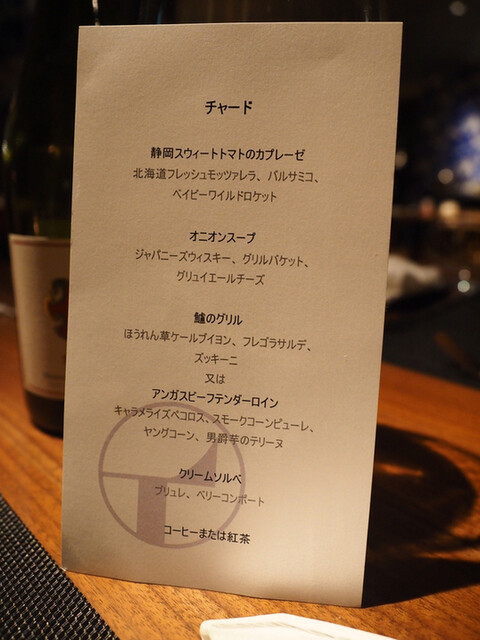 チャード
静岡スウィートトマトのカプレーゼ
北海道フレッシュモッツァレラ、バルサミコ、
ベイビーワイルドロケット
オニオンスープ
ジャパニーズウィスキー、グリルバケット、
グリュイエールチーズ
鱸のグリル
ほうれん草ケールブイヨン、フレゴラサルデ、
ズッキーニ
又は
アンガスビーフテンダーロイン
キャラメライズペコロス、スモークコーンピューレ、
ヤングコーン、男爵芋のテリーヌ
クリームソルベ
ブリュレ、ベリーコンポート
コーヒーまたは紅茶